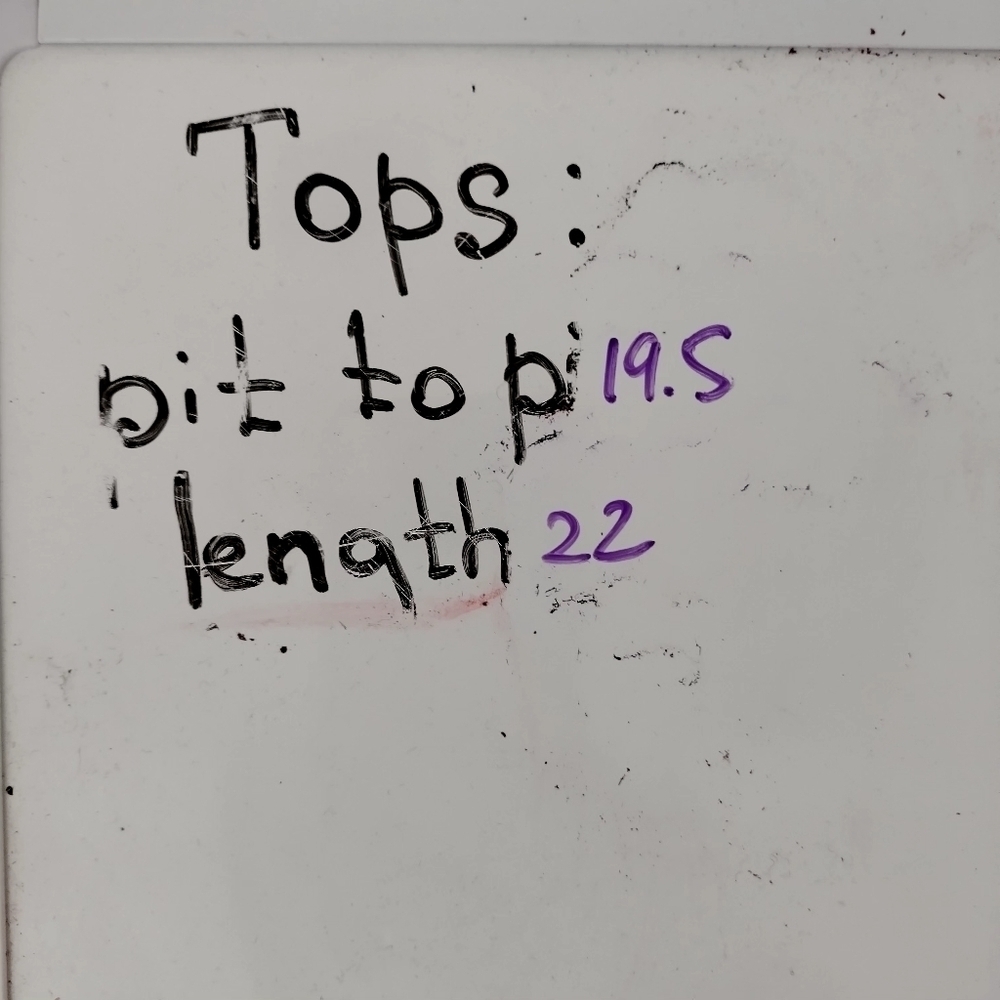 Tops:
pit to pi 19.5
length 22